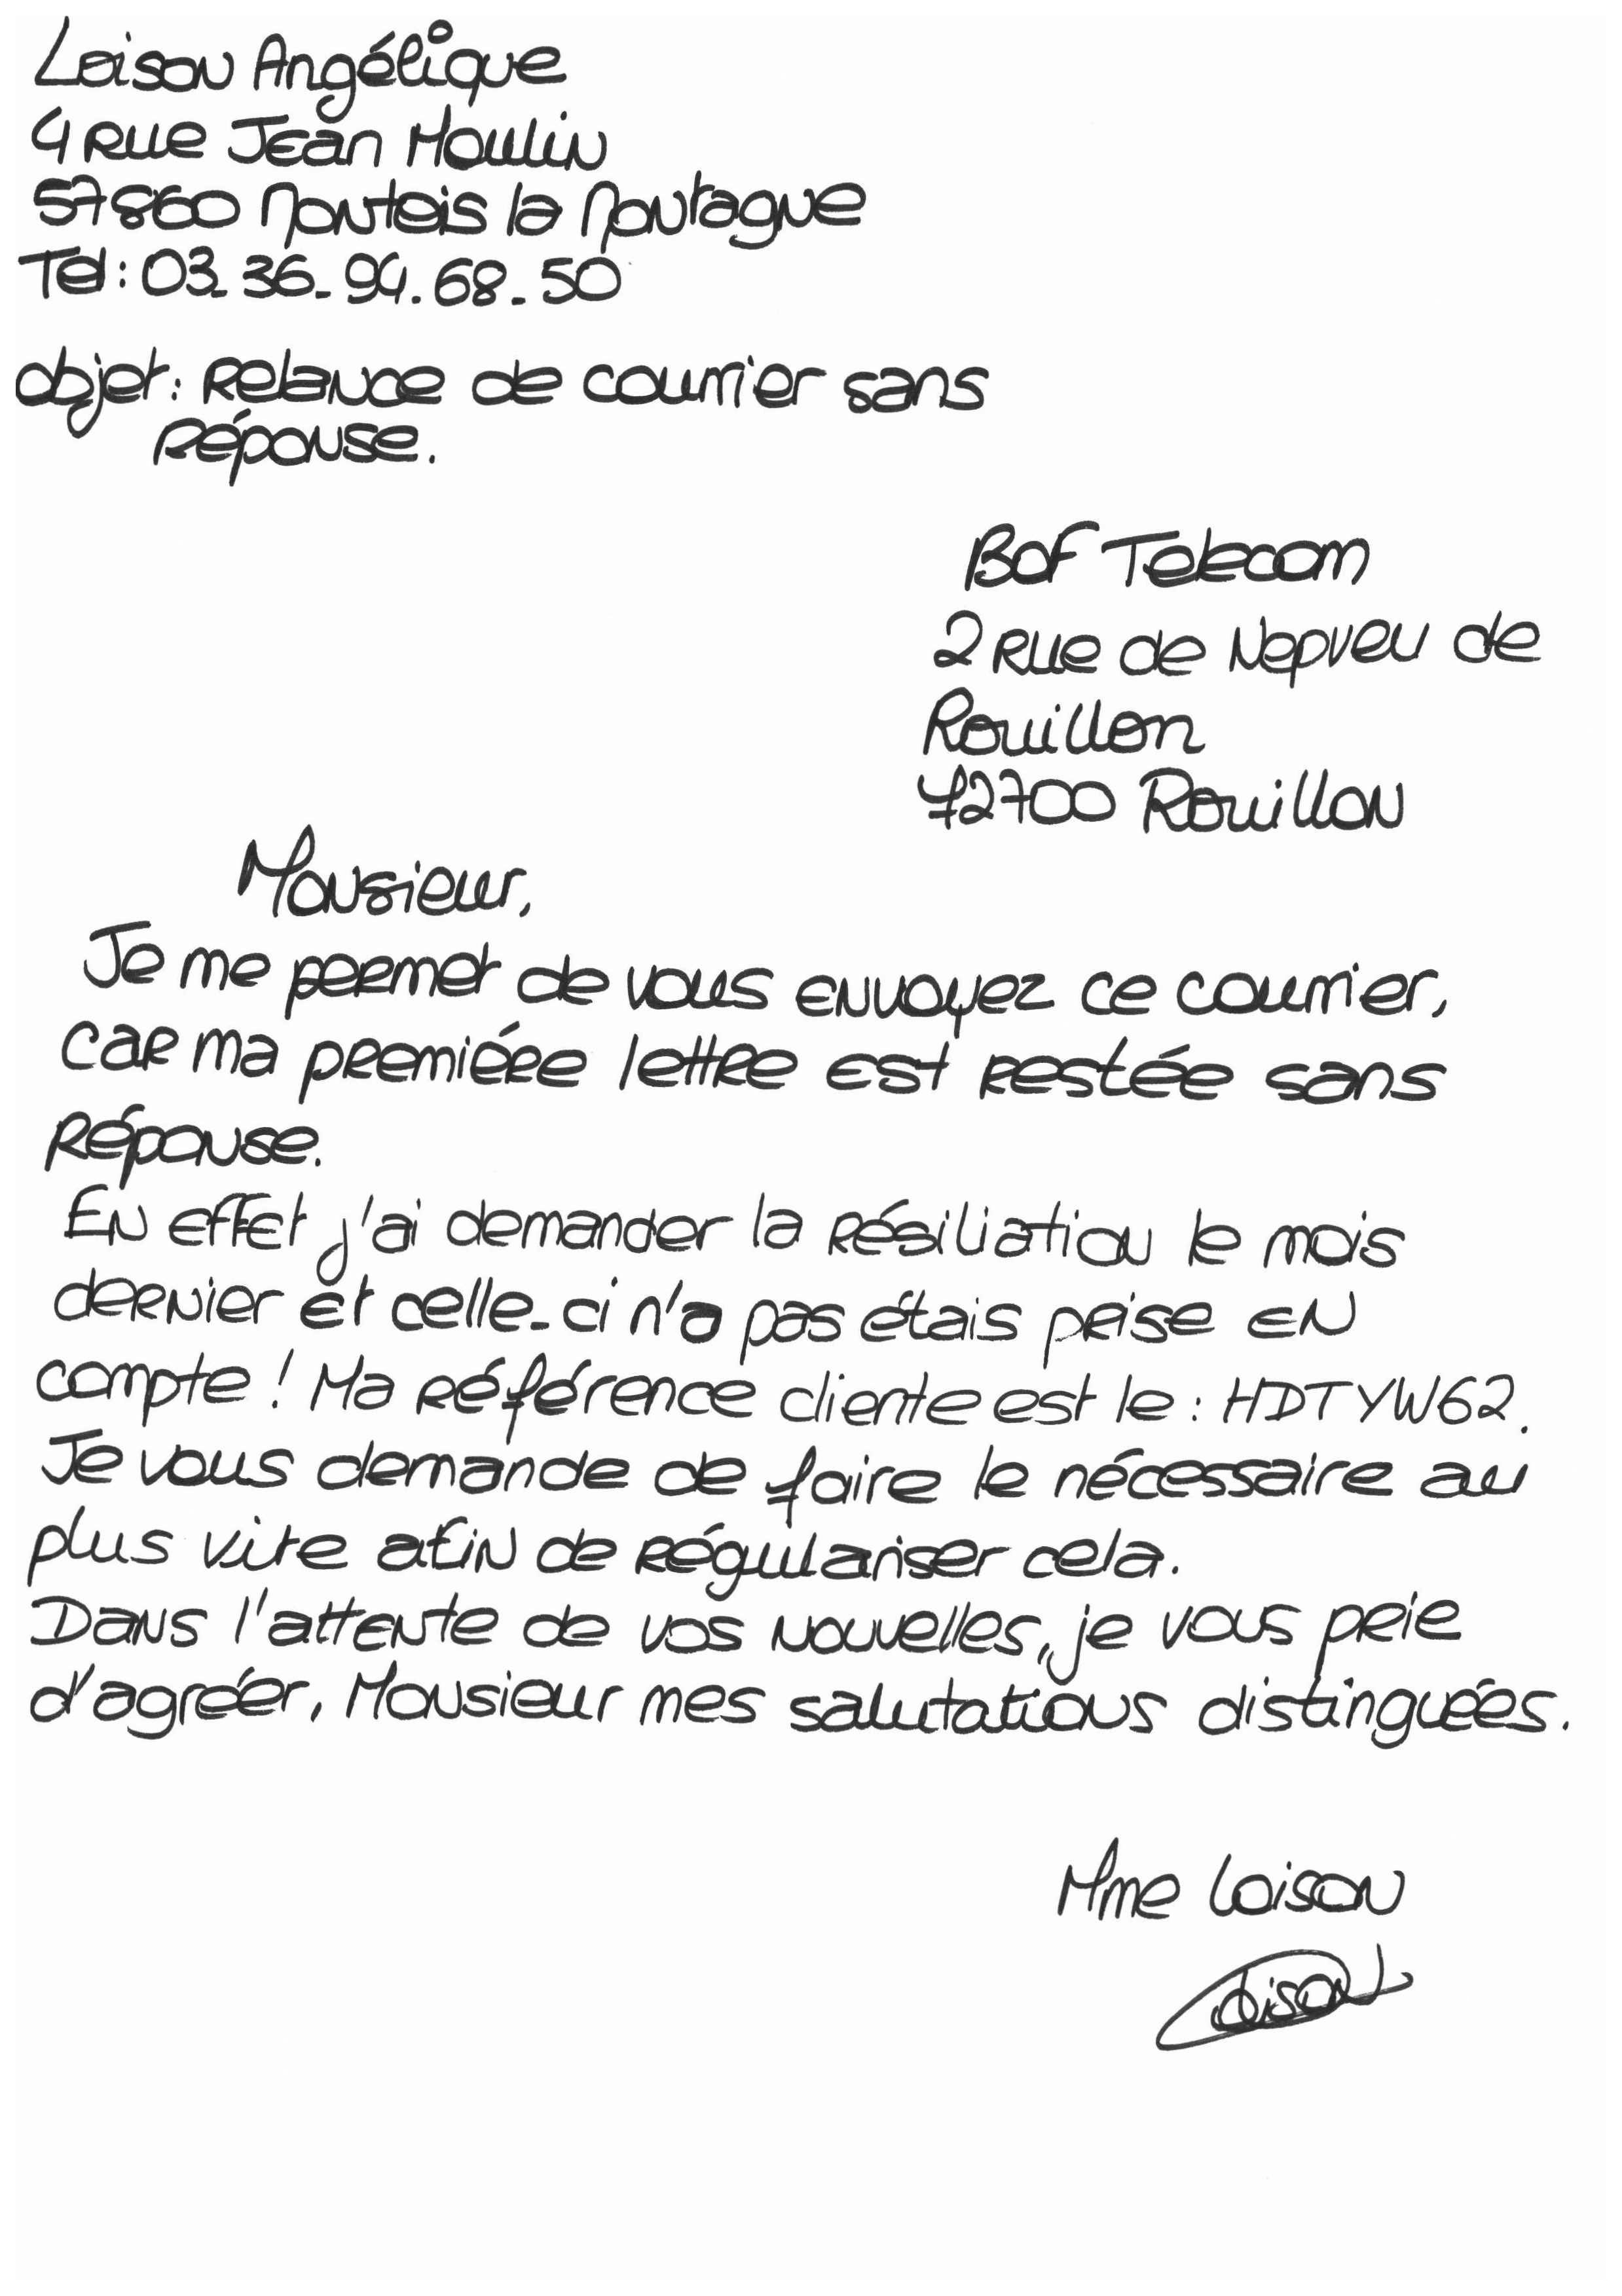 Loison Angélique
4 Rue Jean Moulin
57860 Montois la Montagne
Tel: 03.36.94.68.50
objet: Relance de courrier sans
Réponse.
Bof Telecom
2 Rue de Nepveu de
Rouillon
72700 Rouillon
Monsieur,
Je me permet de vous envoyez ce courrier,
car ma première lettre est restée sans
Réponse.
En effet j'ai demander la résiliation le mois
dernier et celle-ci n'a pas étais prise en
compte ! Ma référence cliente est le : HDTYW62.
Je vous demande de faire le nécessaire au
plus vite afin de régulariser cela.
Dans l'attente de vos nouvelles, je vous prie
d'agréer, Monsieur mes salutations distinguées.
Mme Loison
Loison